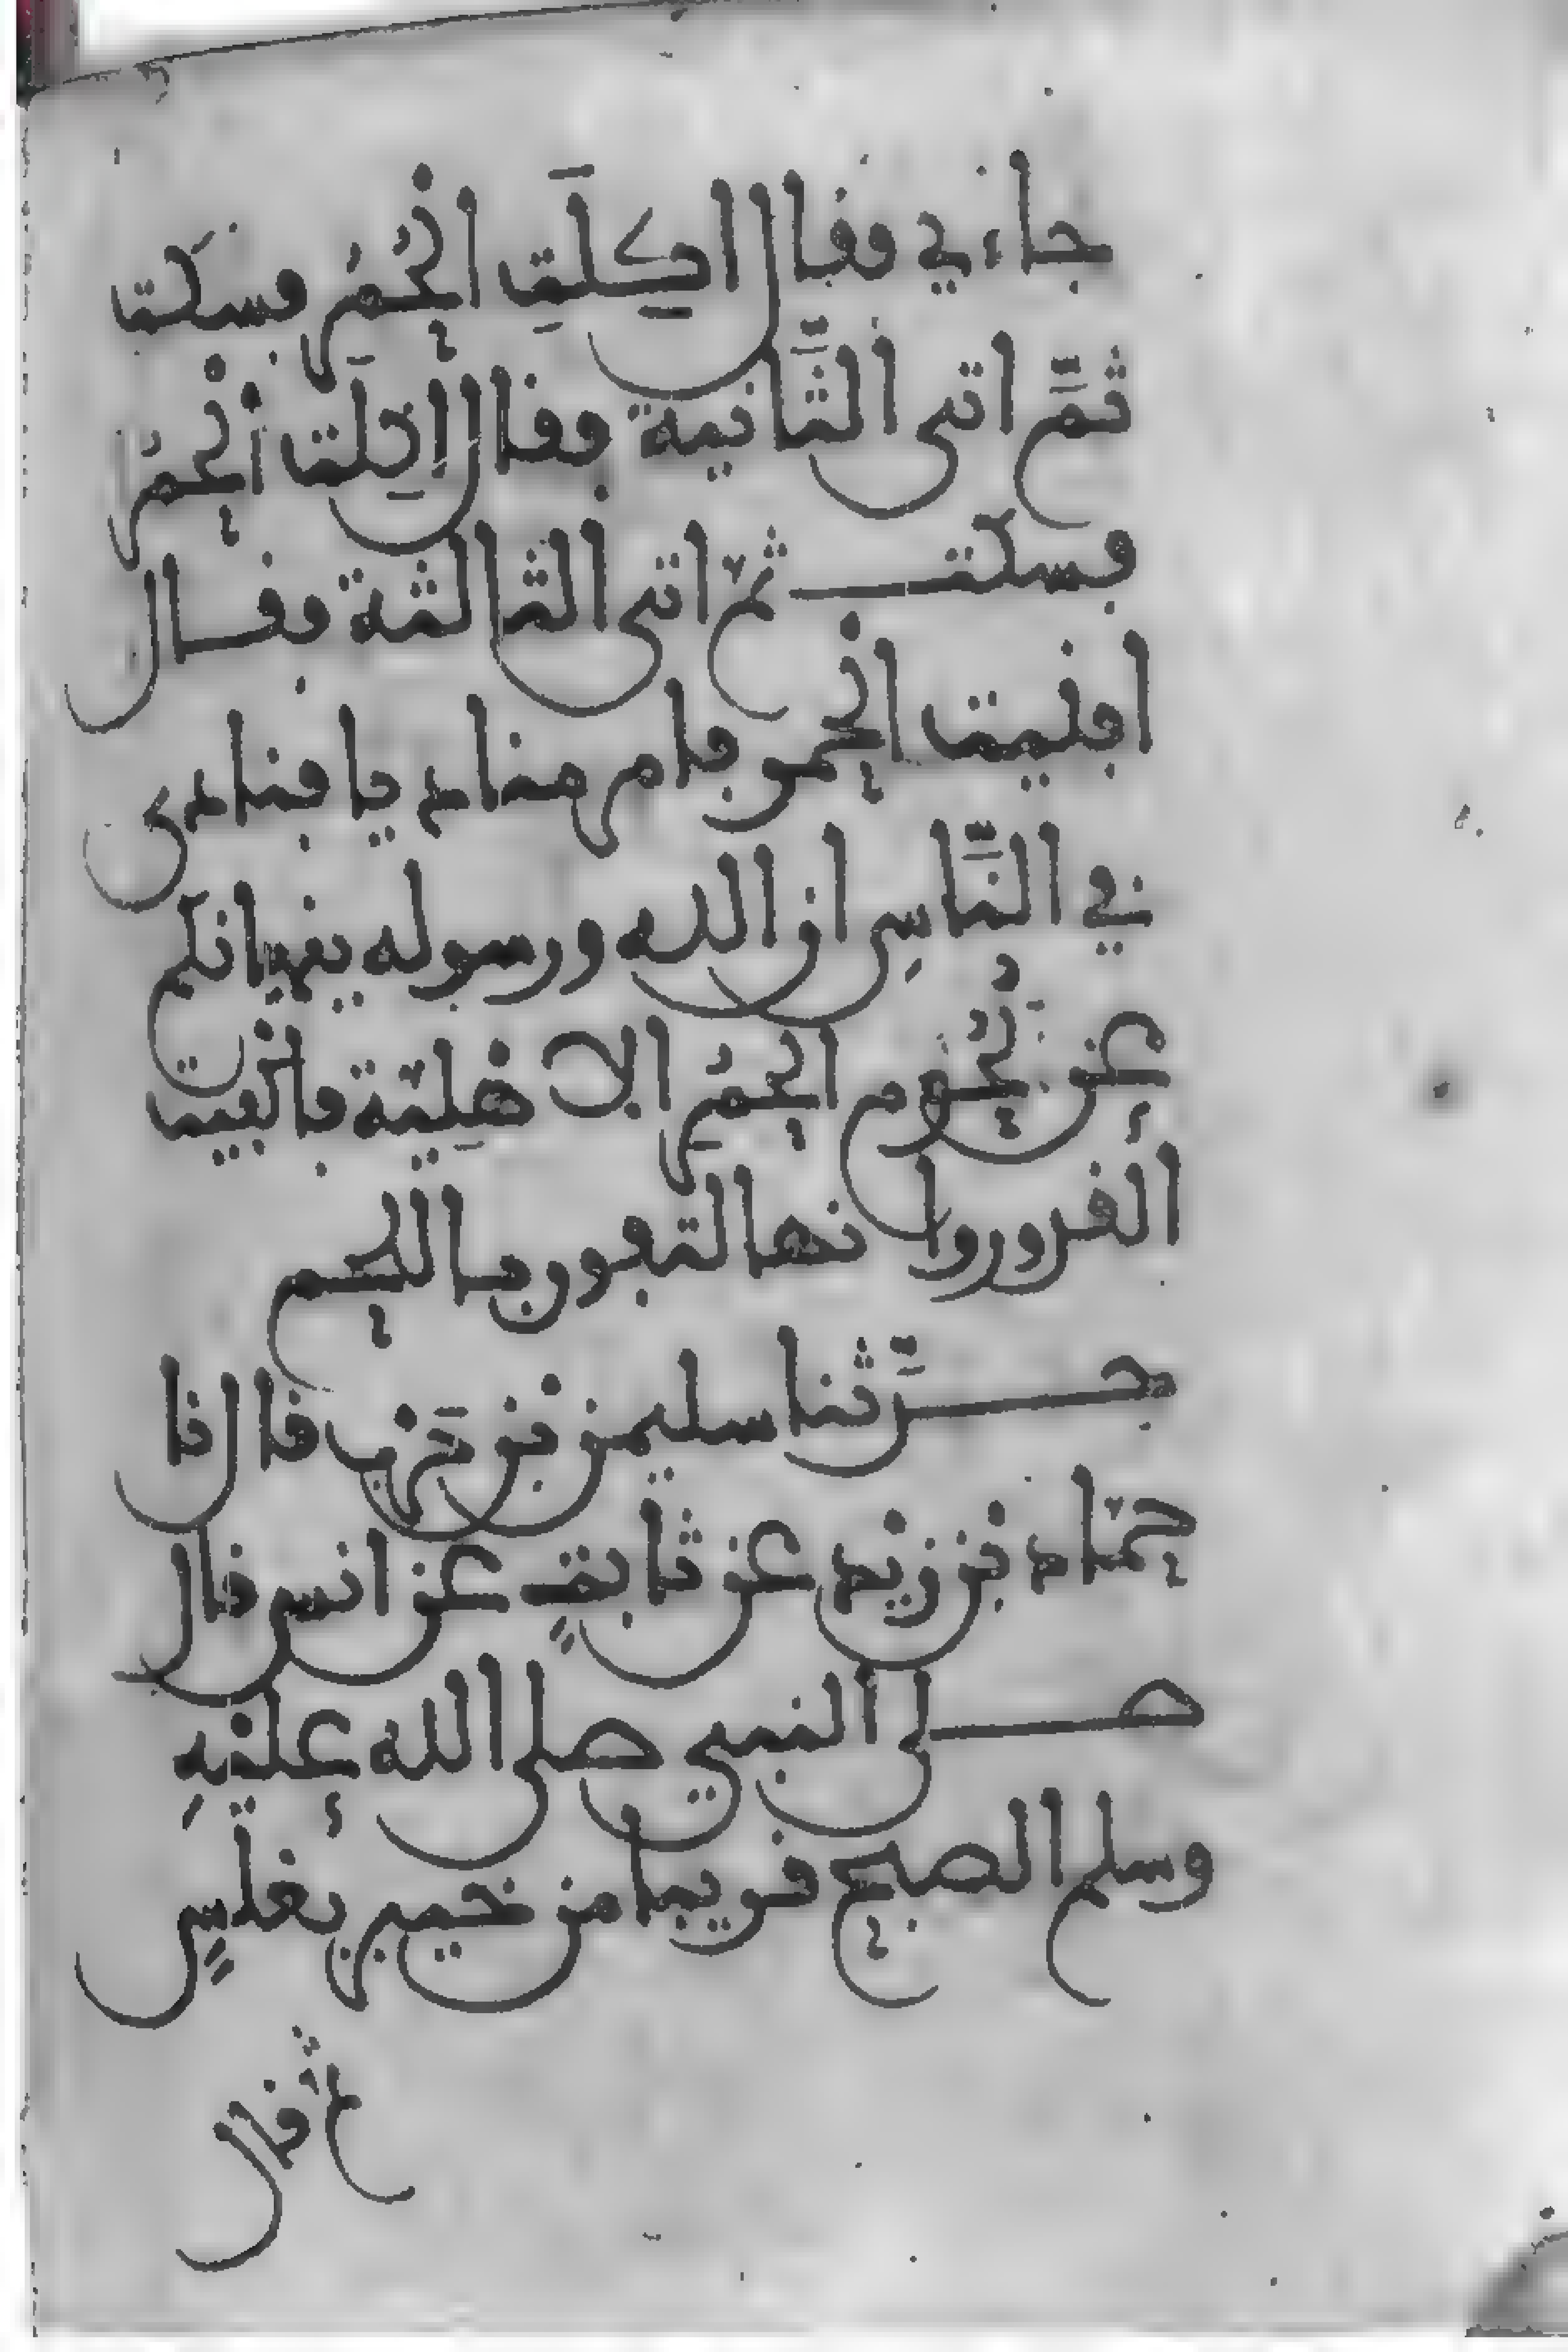 جاءٍ فقال اكِلَتِ الْحُمُرُ فسكت
ثمَّ اتى الثَّانية فقال اكِلَت الْحُمُرُ
فسكت ثم اتى الثالثة فقال
افنيت الْحمر فامر مناديا فنادى
في النَّاسِ ان الله ورسوله ينهيانكم
عن لُحُوم الحمُرِ الاهْلِيَّة فاكْفِيت
القدور وانها لتفور باللحم
حدَّثنا سليمن بْن حَرْب قال نا
حمّاد بْن زيْد عن ثابتٍ عن انس قال
صلى النبي صلى الله عليْهِ
وسلم الصبح قريبا من خيبر بغلسٍ
ثم قال